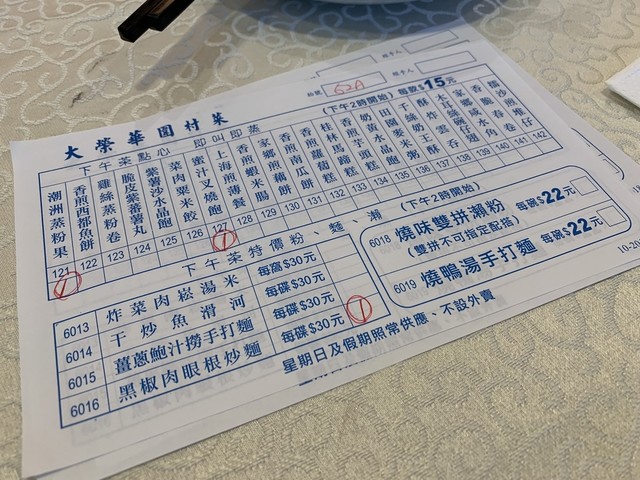 經手人
枱號 62A 經手人
大榮華圍村菜
下午茶點心 即叫即蒸 (下午2時開始) 每款$15元
潮洲蒸粉果
香煎西都魚餅
雞絲蒸粉卷
脆皮紫蕃薯丸
紫薯沙水晶飽
菜肉粟米餃
蜜汁叉燒飽
香煎南瓜餅
香煎蘿蔔糕
桂林馬蹄糕
香煎芋頭糕
奶黃水晶飽
121 122 123 124 125 126 127 128 129 130 131 132 133 134 135 136 137 138 139 140 141 142
下午茶特價粉、麵、瀨 (下午2時開始)
6013 炸菜肉崧湯米 每窩$30元
6014 干炒魚滑河 每碟$30元
6015 薑蔥鮑汁撈手打麵 每碟$30元
6016 黑椒肉眼根炒麵 每碟$30元
6018 燒味雙拼瀨粉 每碗$22元
(雙拼不可指定配搭)
6019 燒鴨湯手打麵 每碗$22元
星期日及假期照常供應、不設外賣